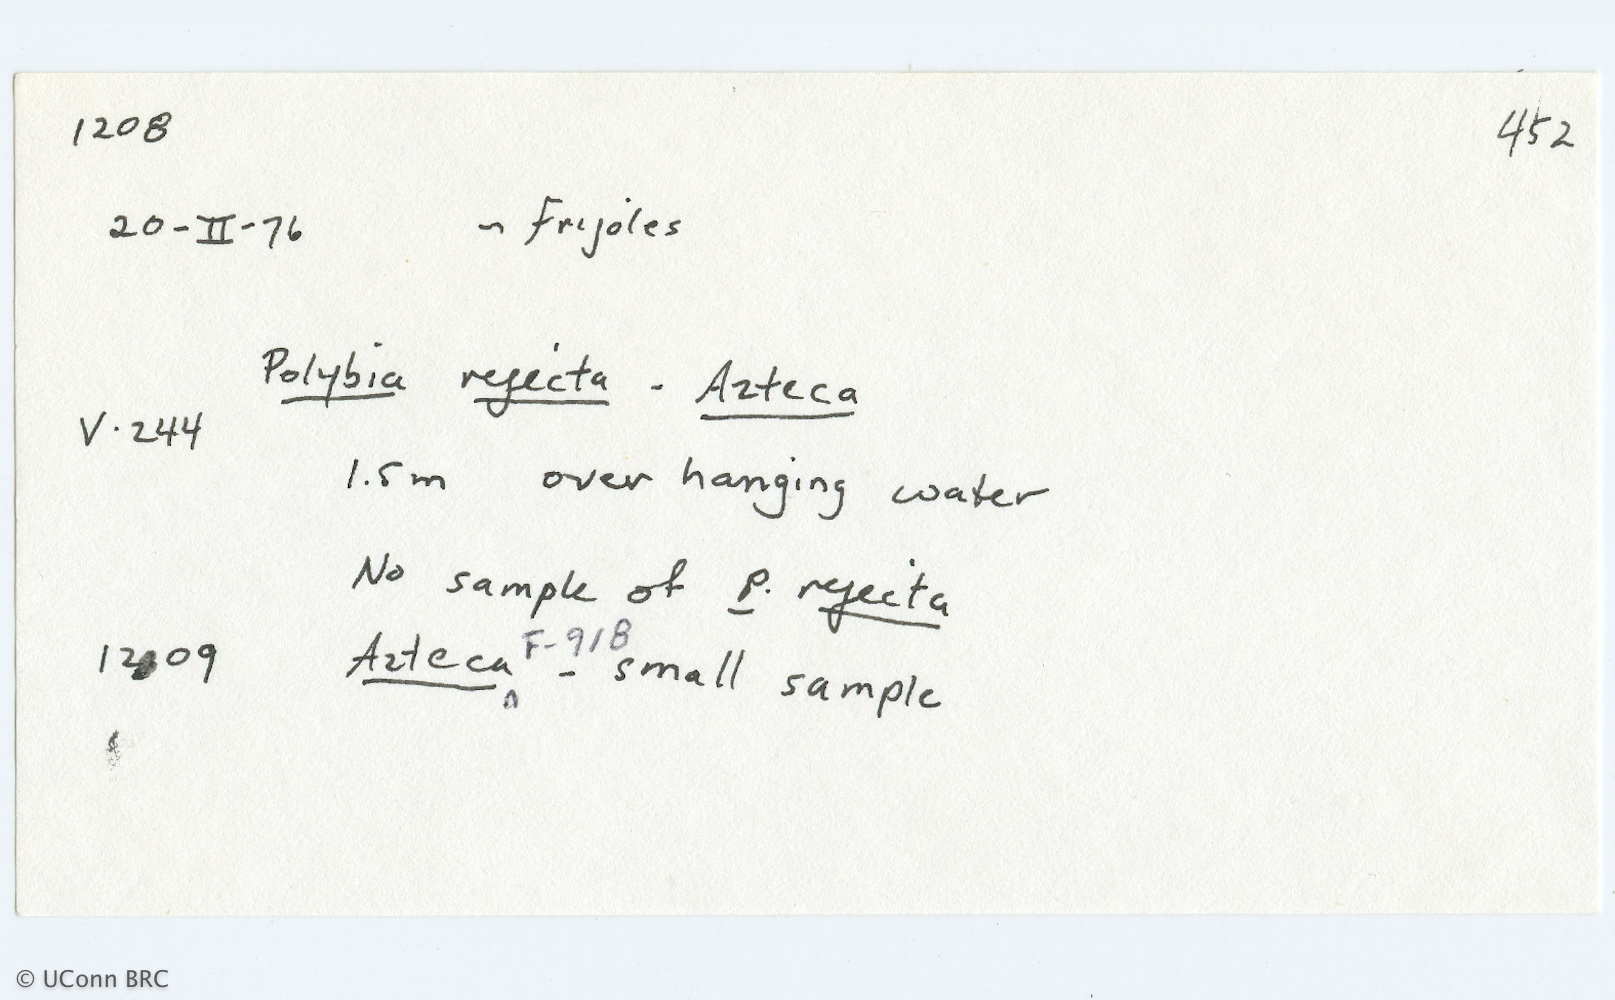 1208 452
20-II-76 ~ Frijoles
Polybia rejecta - Azteca
V.244
1.5m over hanging water
No sample of P. rejecta
1209 Azteca F-918 - small sample
© UConn BRC